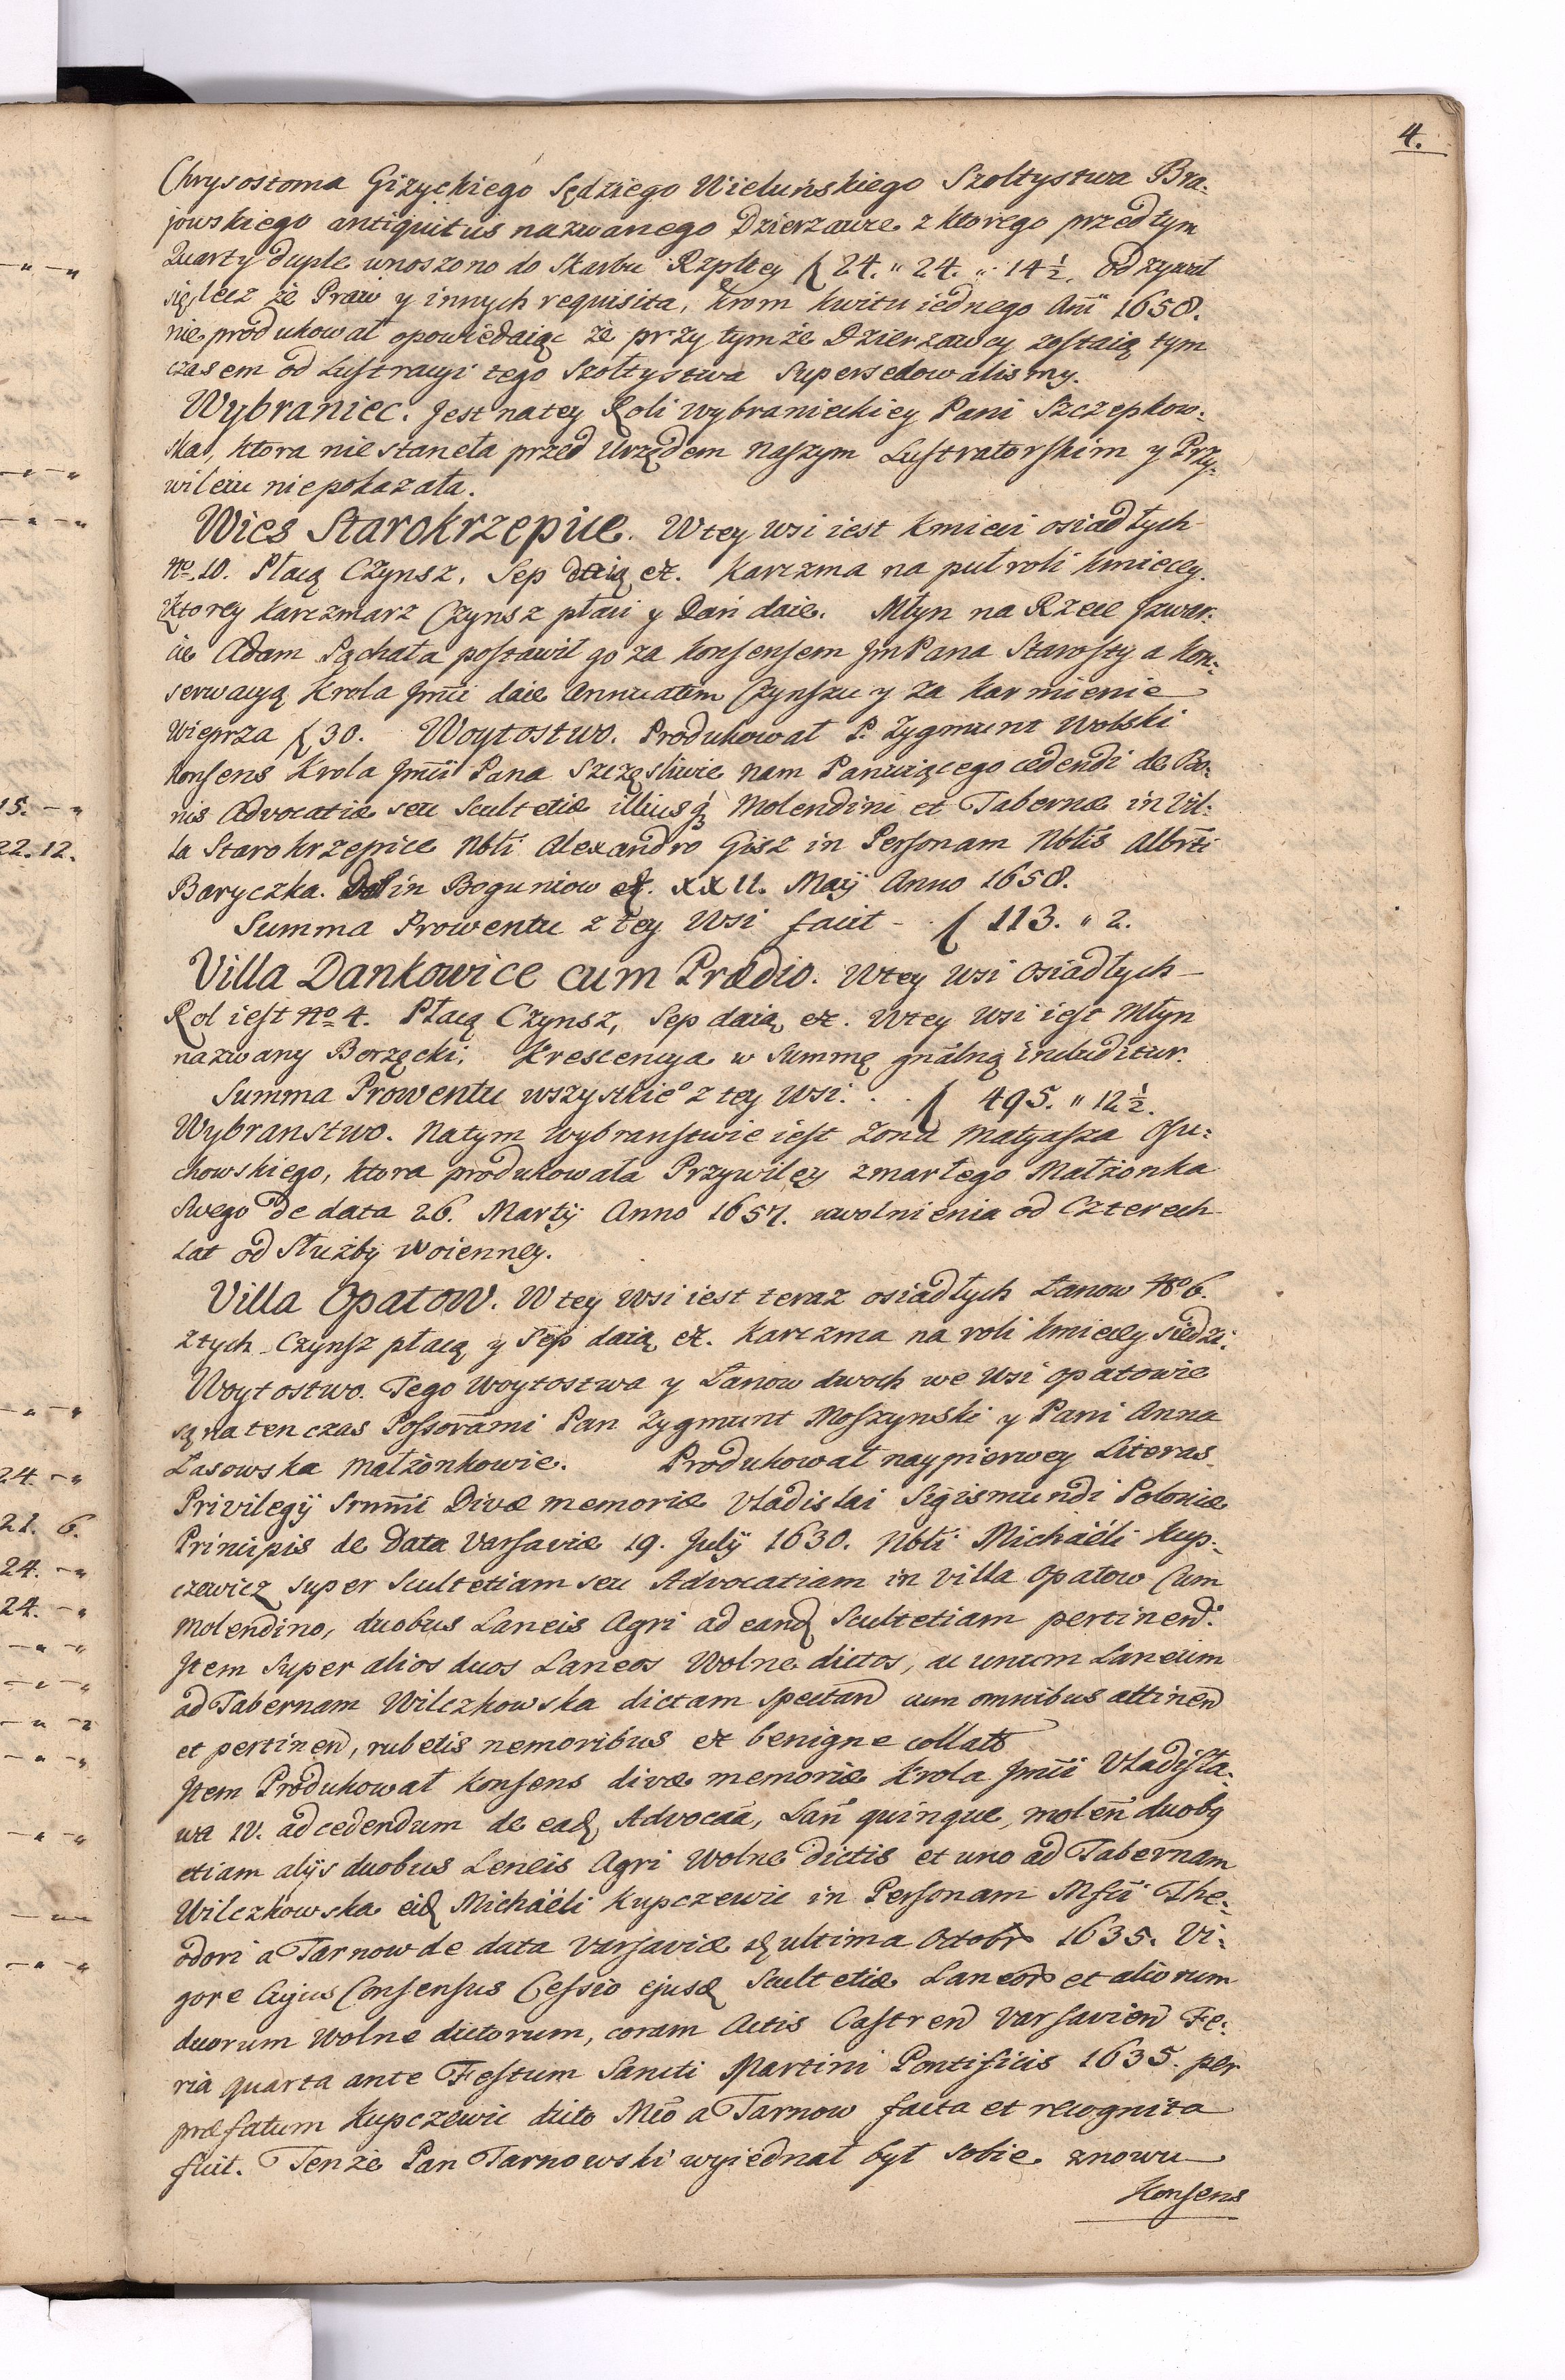 4.
Chrysostoma Giżyckiego Sędziego Wieluńskiego Szołtystwa Bra:
jowskiego antiquitus nazwanego Dzierzawce z ktorego przedtym
Quarty duple wnoszono do Skarbu Rzpltey f 24. " 24. " 14½. Odzywał
się lecz że Praw y innych requisita, krom kwitu iednego Ani 1658.
nie produkował opowiedaiąc że przy tymże Dzierzawcy zostaią tym
czasem od Lustracyi tego Szołtystwa Supersedowalismy.
Wybraniec. Jest na tey Roli wybranieckiey Pani Szczepkow:
ska, ktora nie staneła przed Urzędem naszym Lustratorskim y Przy:
wileiu niepokazała.
Wies Starokrzepice. W tey wsi iest Kmieci osiadłych
No. 10. Płacą Czynsz, Sep daią etc. Karczma na puł roli kmiecey.
Z ktorey karczmarz Czynsz płaci y Dań daie. Młyn na Rzece Szwar:
cie Adam Pąchała postawił go za konsensem JmPana Starosty a kon:
serwacyą Krola Jmci daie Annuatim Czynszu y za karmienie
Wieprza f 30. Woytostwo. Produkował P. Zygmunt Wolski
konsens Krola Jmci Pana Szczęsliwie nam Panuiącego cedendi de Bo:
nis Advocatiæ seu Scultetiæ illiusq Molendini et Tabernæ in Vil:
la Starokrzepice Nbli Alexandro Gisz in Personam Nblis Albrti
Baryczka. Dat in Boguniow etc. XXII. Maij Anno 1658.
Summa Prowentu z tey Wsi facit - . f 113. " 2.
Villa Dankowice cum Prædio. W tey wsi osiadłych
Rol iest No 4. Płacą Czynsz, Sep daią etc. W tey wsi iest Młyn
nazwany Borzęcki; Krescencya w Summę gnalną includitur.
Summa Prowentu wszystkieo z tey Wsi. . . f 495. " 12½.
Wybranstwo. Na tym wybranstwie iest żona Matyasza Osu:
chowskiego, ktora produkowała Przywiley zmarłego Małżonka
Swego de data 26. Martij Anno 1657. uwolnienia od Czterech
Lat od Służby woienney.
Villa Opatow. W tey wsi iest teraz osiadłych Łanow No 6.
z tych Czynsz płacą y Sep daią etc. Karczma na roli kmiecey siedzi.
Woytostwo. Tego Woytostwa y Łanow dwoch we wsi Opatowie
są na ten czas Possorami Pan Zygmunt Moszynski y Pani Anna
Lasowska Małżonkowie. Produkował naypierwey Literas
Privilegij Srnmi Divæ memoriæ Vladislai Sigismundi Poloniæ
Principis de Data Varsaviæ 19. Julij 1630. Nbli Michaëli Kup:
czewicz super Scultetiam seu Advocatiam in villa Opatow Cum
Molendino, duobus Laneis Agri ad eand Scultetiam pertinend.
Item super alios duos Laneos Wolne dictos, ac unum Laneum
ad Tabernam Wilczkowska dictam spectand cum omnibus attinend
et pertinend, rubetis nemoribus etc benigne collats
Item Produkował konsens divæ memoriæ Krola Jmci Władysła:
wa IV. ad cedendum de ead Advocaa, Lan quinque, molen duobq
etiam alijs duobus Laneis Agri Wolne dictis et uno ad Tabernam
Wilczkowska eid Michaëli Kupczewic in Personam Mfci The:
odori a Tarnow de data Varsaviæ d ultima Octobr 1635. Vi:
gore Cujus Consensus Cessio ejusd Scultetiæ Laneor et aliorum
duorum Wolne dictorum, coram Actis Castrend Varsaviend Fe:
ria quarta ante Festum Sancti Martini Pontificis 1635. per
præfatum Kupczewic dicto Mco a Tarnow facta et recognita
fuit. Tenże Pan Tarnowski wyiednał był sobie znowu
Konsens
15. - "
22. 12.
24. - "
21. 6.
24. - "
24. - "